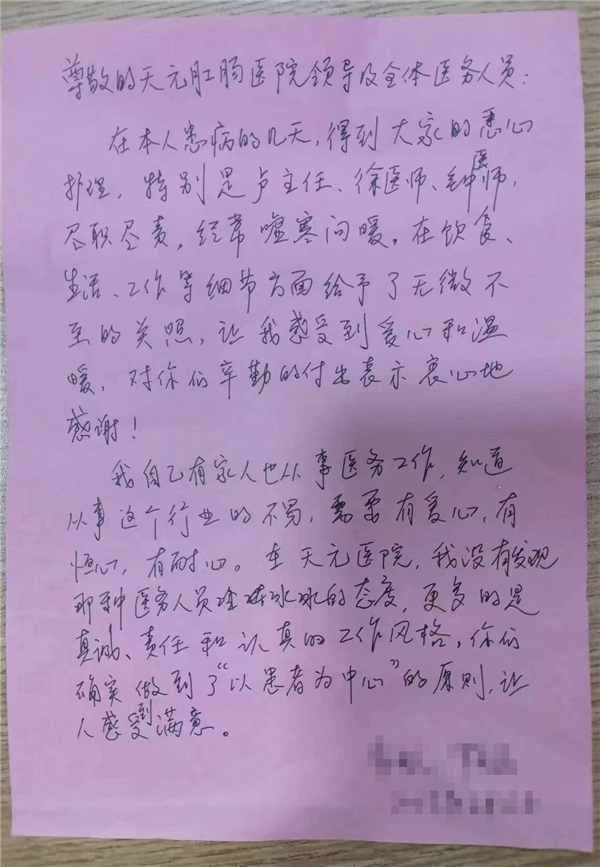 尊敬的天元肛肠医院领导及全体医务人员:
在本人患病的几天,得到大家的悉心
护理,特别是卢主任、徐医师、钟医师,
尽职尽责,经常嘘寒问暖。在饮食、
生活、工作等细节方面给予了无微不
至的关照,让我感受到爱心和温
暖,对你们辛勤的付出表示衷心地
感谢!
我自己有家人也从事医务工作,知道
从事这个行业的不易,需要有爱心,有
恒心,有耐心。在天元医院,我没有发现
那种医务人员冷冰冰的态度,更多的是
真诚、责任和认真的工作风格,你们
确实做到了“以患者为中心”的原则,让
人感受到满意。